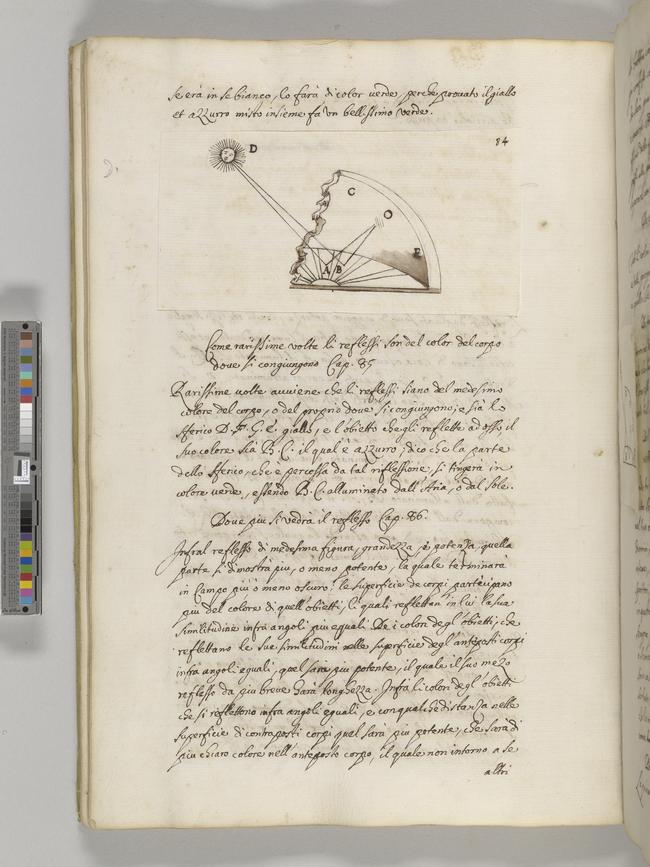 se sera in se bianco, lo farà di color verde, perche provato il giallo
et azzurro misto insieme fà un bellissimo verde.
84
D
C
O
E
A B
Come rarissime volte li reflessi son del color del corpo
dove si congiungono Cap. 85
Rarissime volte avviene che li reflessi siano del medesimo
colore del corpo, o del proprio dove si congiungono; e sia lo
sferico D. F. G. E. giallo, e l'obietto che gli reflette adosso, il
suo colore sia B. C. il qual è azzurro; dico che la parte
dello sferico, che è percossa da tal riflessione, si tingerà in
colore verde, essendo B. C. alluminato dall'Aria, o dal Sole.
Dove piu si vedrà il reflesso Cap. 86.
Infral reflesso di medesima figura, grandezza, e potenza, quella
parte si dimostra piu, o meno potente, la quale terminara
in Campo piu o meno oscuro; le superficie de corpi partecipano
piu del colore di quell'obietti, li quali reflettan in lui la sua
similitudine infra angoli piu equali. De i colori degl'obietti, che
reflettano le sue similitudini nelle superficie degl'anteposti corpi
infra angoli eguali, quel sara piu potente, il quale il suo mezo
reflesso da piu breve harà longhezza. Infra li colori degl'obietti
che si reflettono infra angoli eguali, e con qualche distanza nelle
superficie di contraposti corpi quel sarà piu potente, che sarà di
piu chiaro colore nell'anteposto corpo, il quale non intorno a se
altri